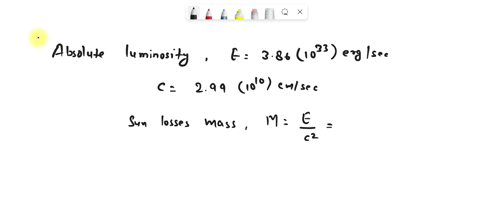 Absolute luminosity, E = 3.86 (10^33) erg/sec
C = 2.99 (10^10) cm/sec
Sun losses mass, M = E/c^2 =